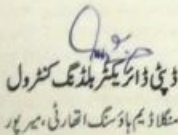 ڈپٹی ڈائریکٹر بلڈنگ کنٹرول
منگلا ڈیم ہاؤسنگ اتھارٹی، میرپور